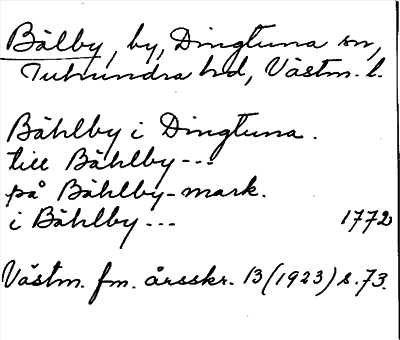 Bälby, by, Dingtuna sn,
Tuhundra hd, Västm. l.
Bählby i Dingtuna.
till Bählby---
på Bählby-mark.
i Bählby--- 1772
Västm. fm. årsskr. 13 (1923) s. 73.